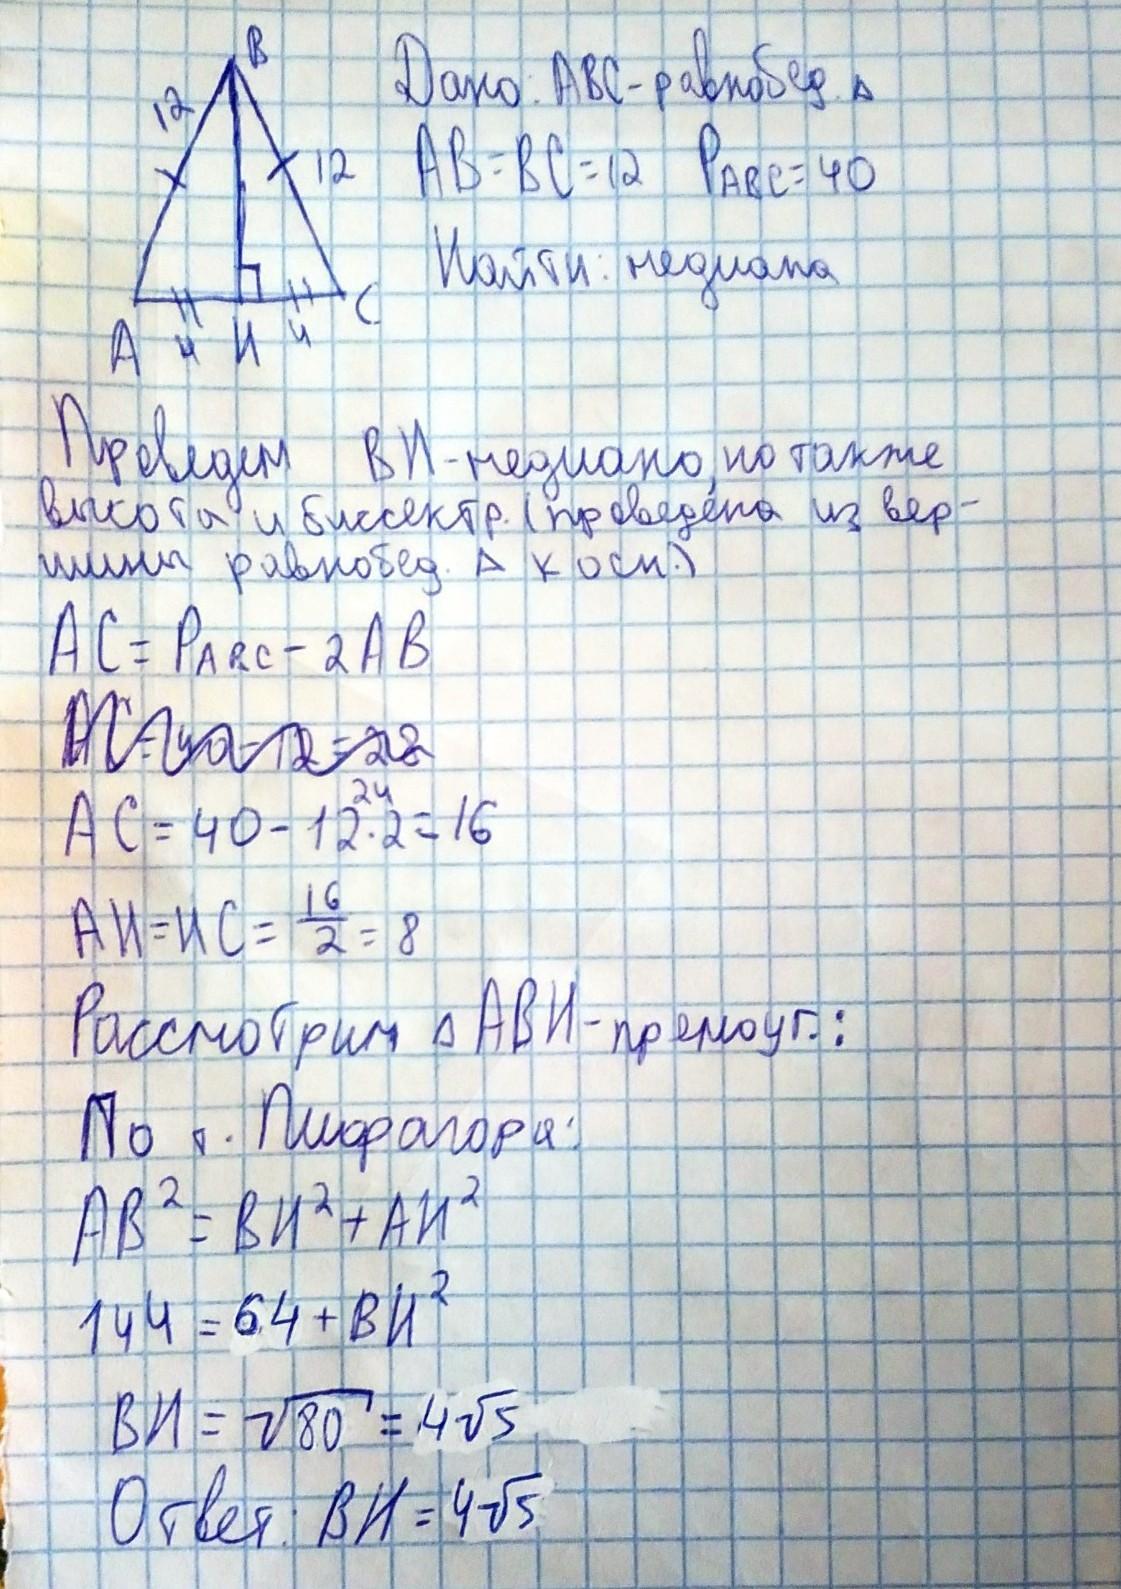 B
12
12
A
4
H
4
C
Дано: ABC-равнобед. Δ
AB=BC=12 PABC=40
Найти: медиана
Проведем BH-медиано, но также
высота и биссектр. (проведена из вер-
шины равнобед. Δ к осн.)
AC=PABC-2AB
AC=40-12=28
24
AC=40-12·2=16
AH=HC=16/2=8
Рассмотрим ΔABH-премоуг.:
По т. Пифагора:
AB²=BH²+AH²
144=64+BH²
BH=√80=4√5
Ответ: BH=4√5